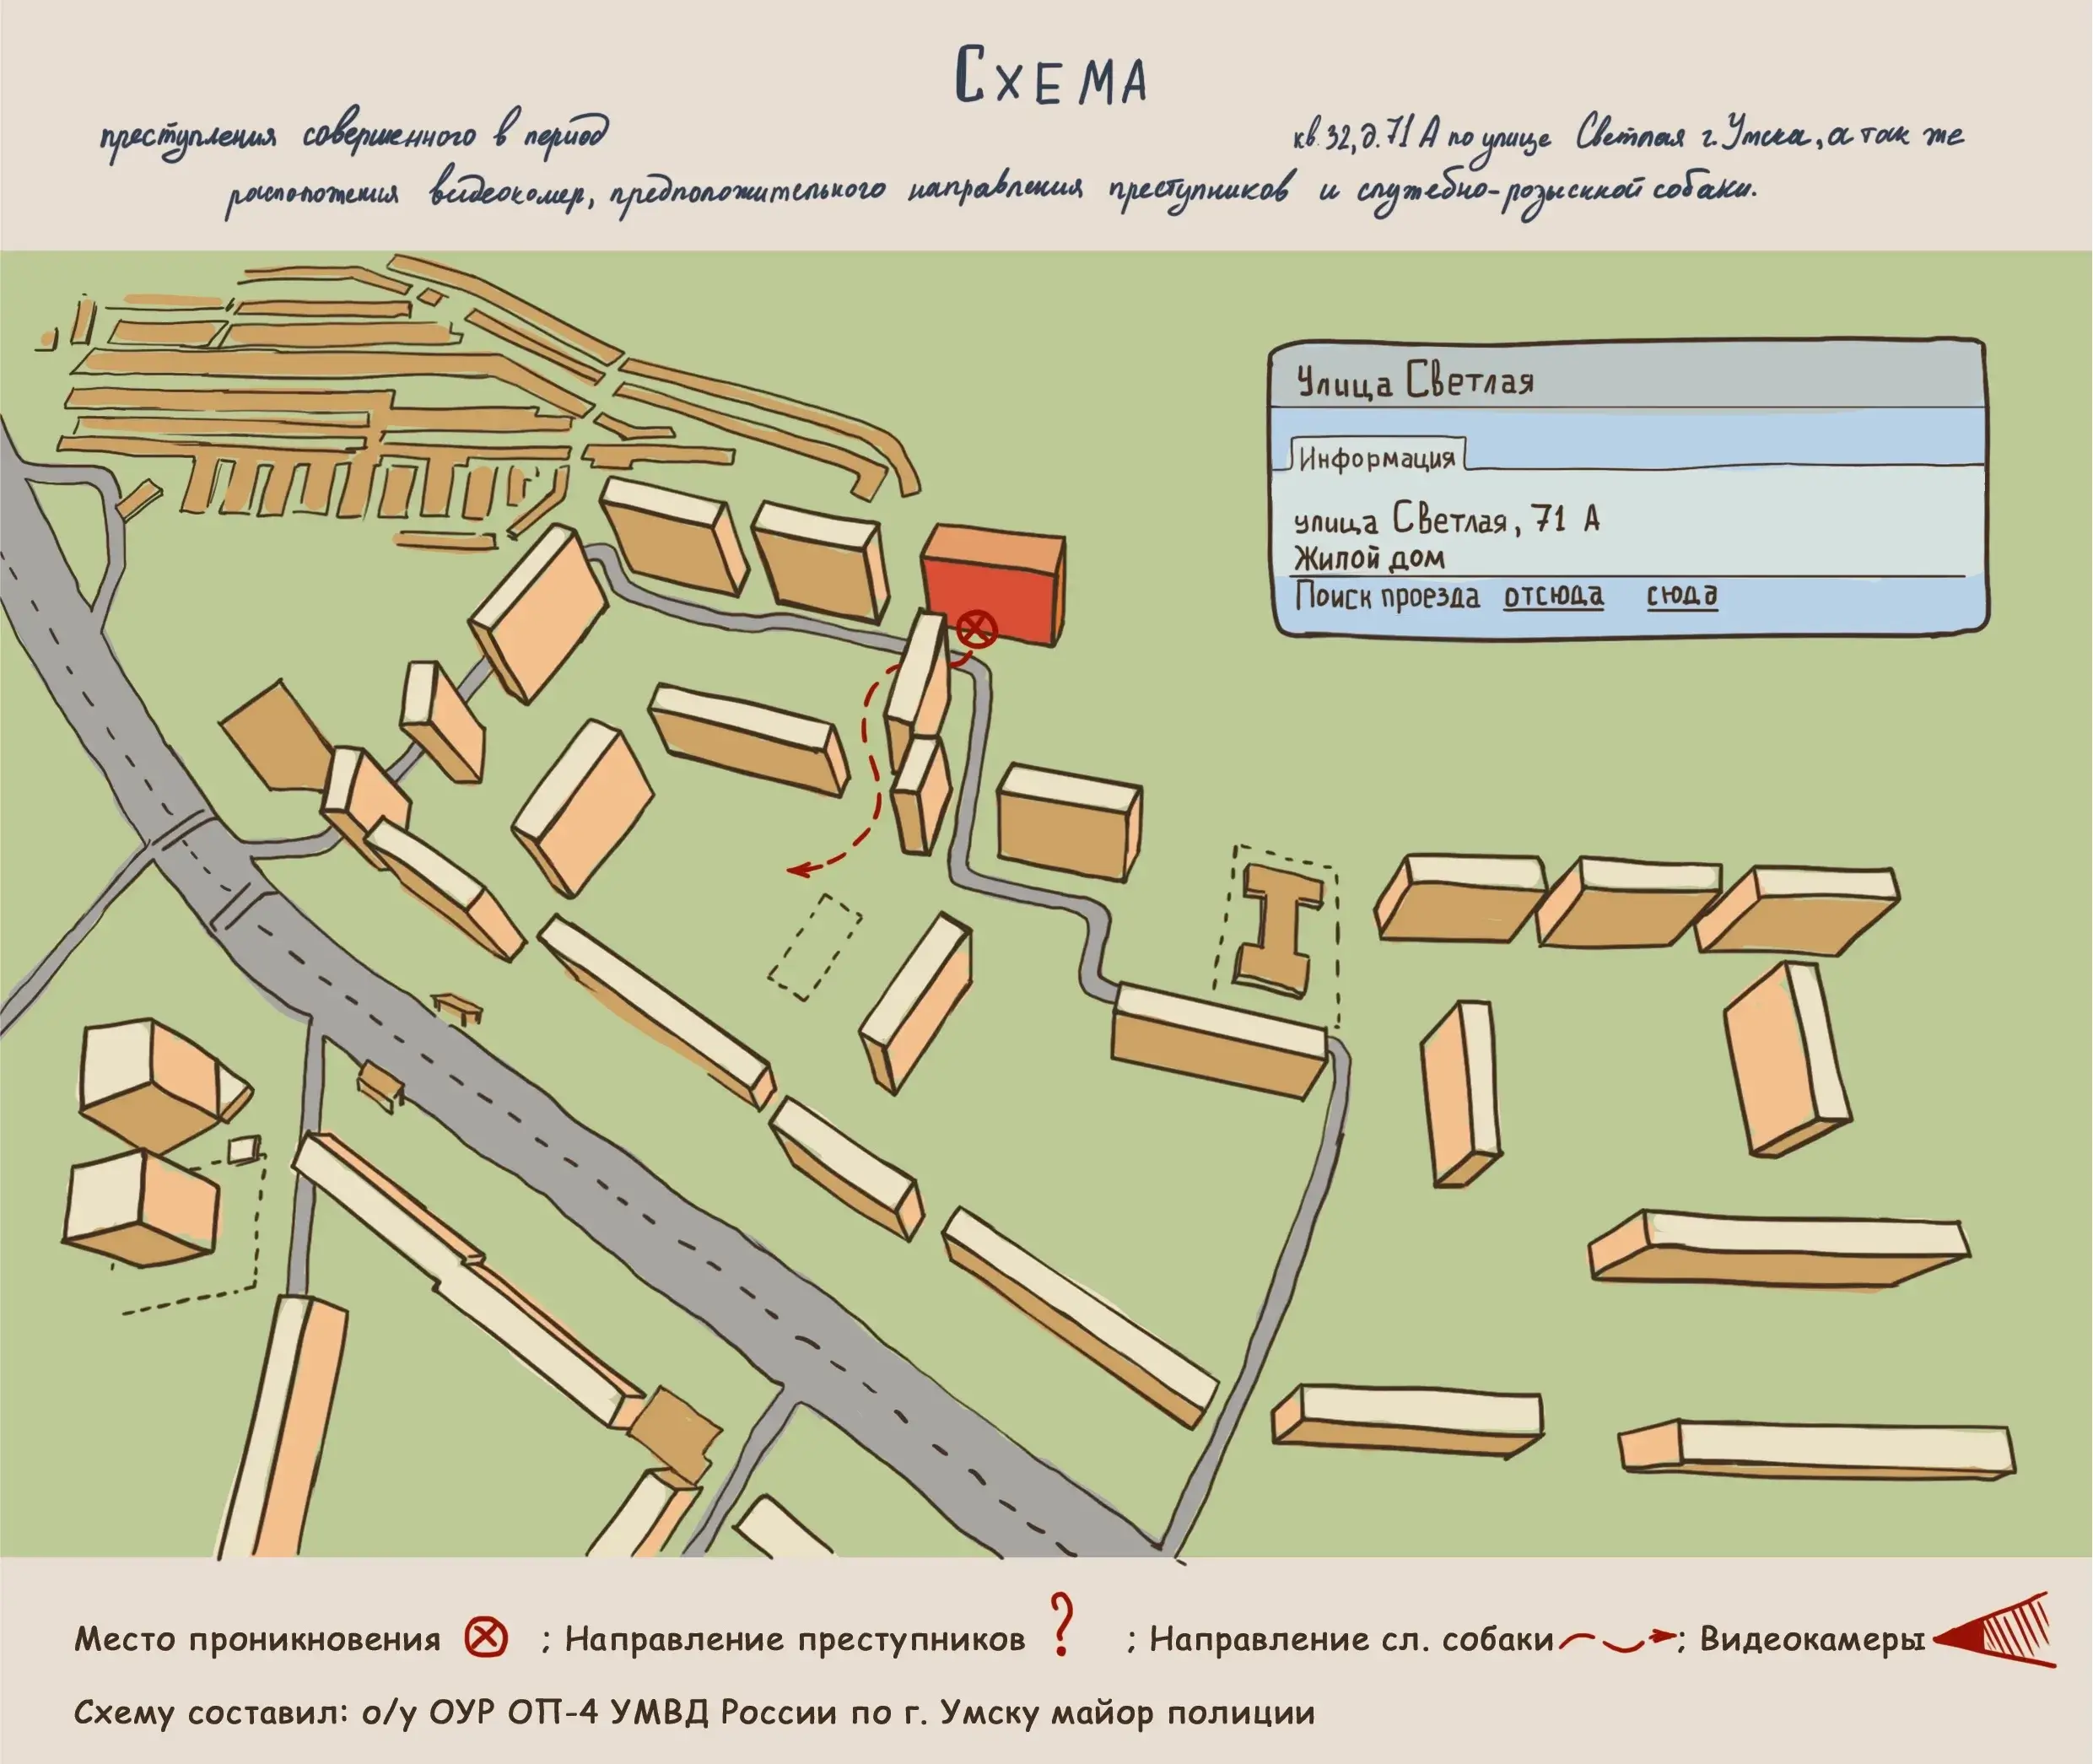 Схема
преступления совершенного в период кв. 32, д. 71 А по улице Светлая г. Умска, а так же
расположения видеокамер, предположительного направления преступников и служебно-розыскной собаки.
Улица Светлая
Информация
улица Светлая, 71 А
Жилой дом
Поиск проезда отсюда сюда
Место проникновения ; Направление преступников ? ; Направление сл. собаки ; Видеокамеры
Схему составил: о/у ОУР ОП-4 УМВД России по г. Умску майор полиции